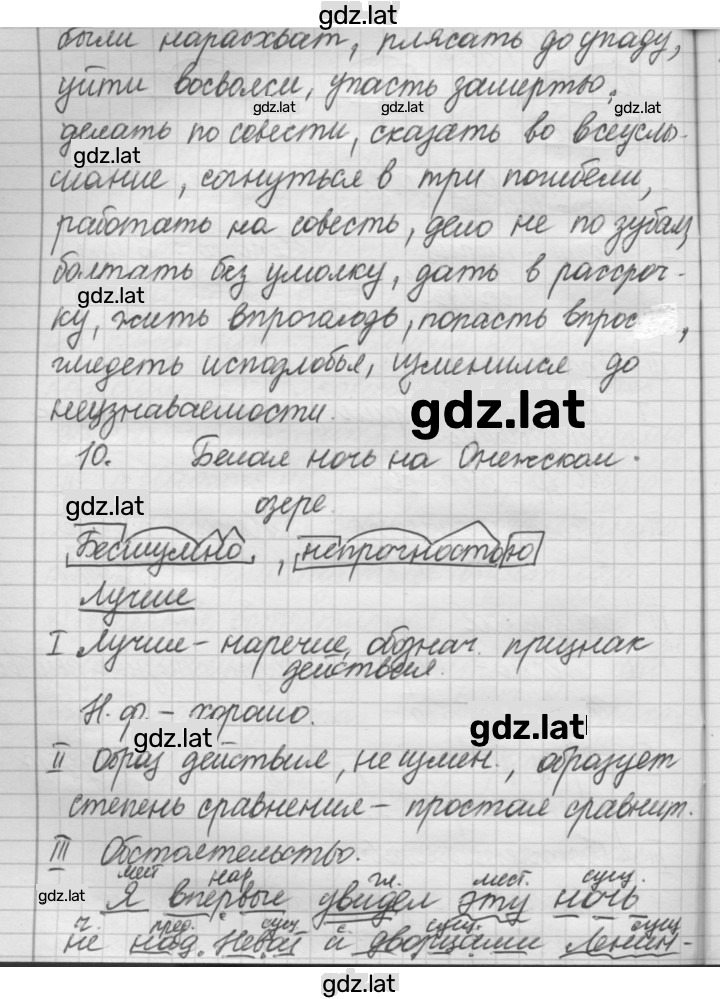 gdz.lat
были нарасхват, плясать до упаду,
уйти восвояси, упасть замертво,
gdz.lat gdz.lat gdz.lat
делать по совести, сказать во всеуслы-
gdz.lat
шание, согнуться в три погибели,
работать на совесть, дело не по зубам,
болтать без умолку, дать в рассроч-
gdz.lat
ку, жить впроголодь, попасть впрос
глядеть исподлобья, изменился до
неузнаваемости.
gdz.lat
10. Белая ночь на Онежском
gdz.lat
озере.
Бесшумно, непрочностью
Лучше
I Лучше - наречие, обознач. признак
действия.
Н. ф. - хорошо.
gdz.lat gdz.lat
II Образ действия, неизмен., образует
степень сравнения - простая сравнит.
III Обстоятельство.
мест нар гл. мест. сущ.
gdz.lat
Я впервые увидел эту ночь
ч. пред. сущ. сущ. сущ
не над Невой и дворцами Ленин-
gdz.lat